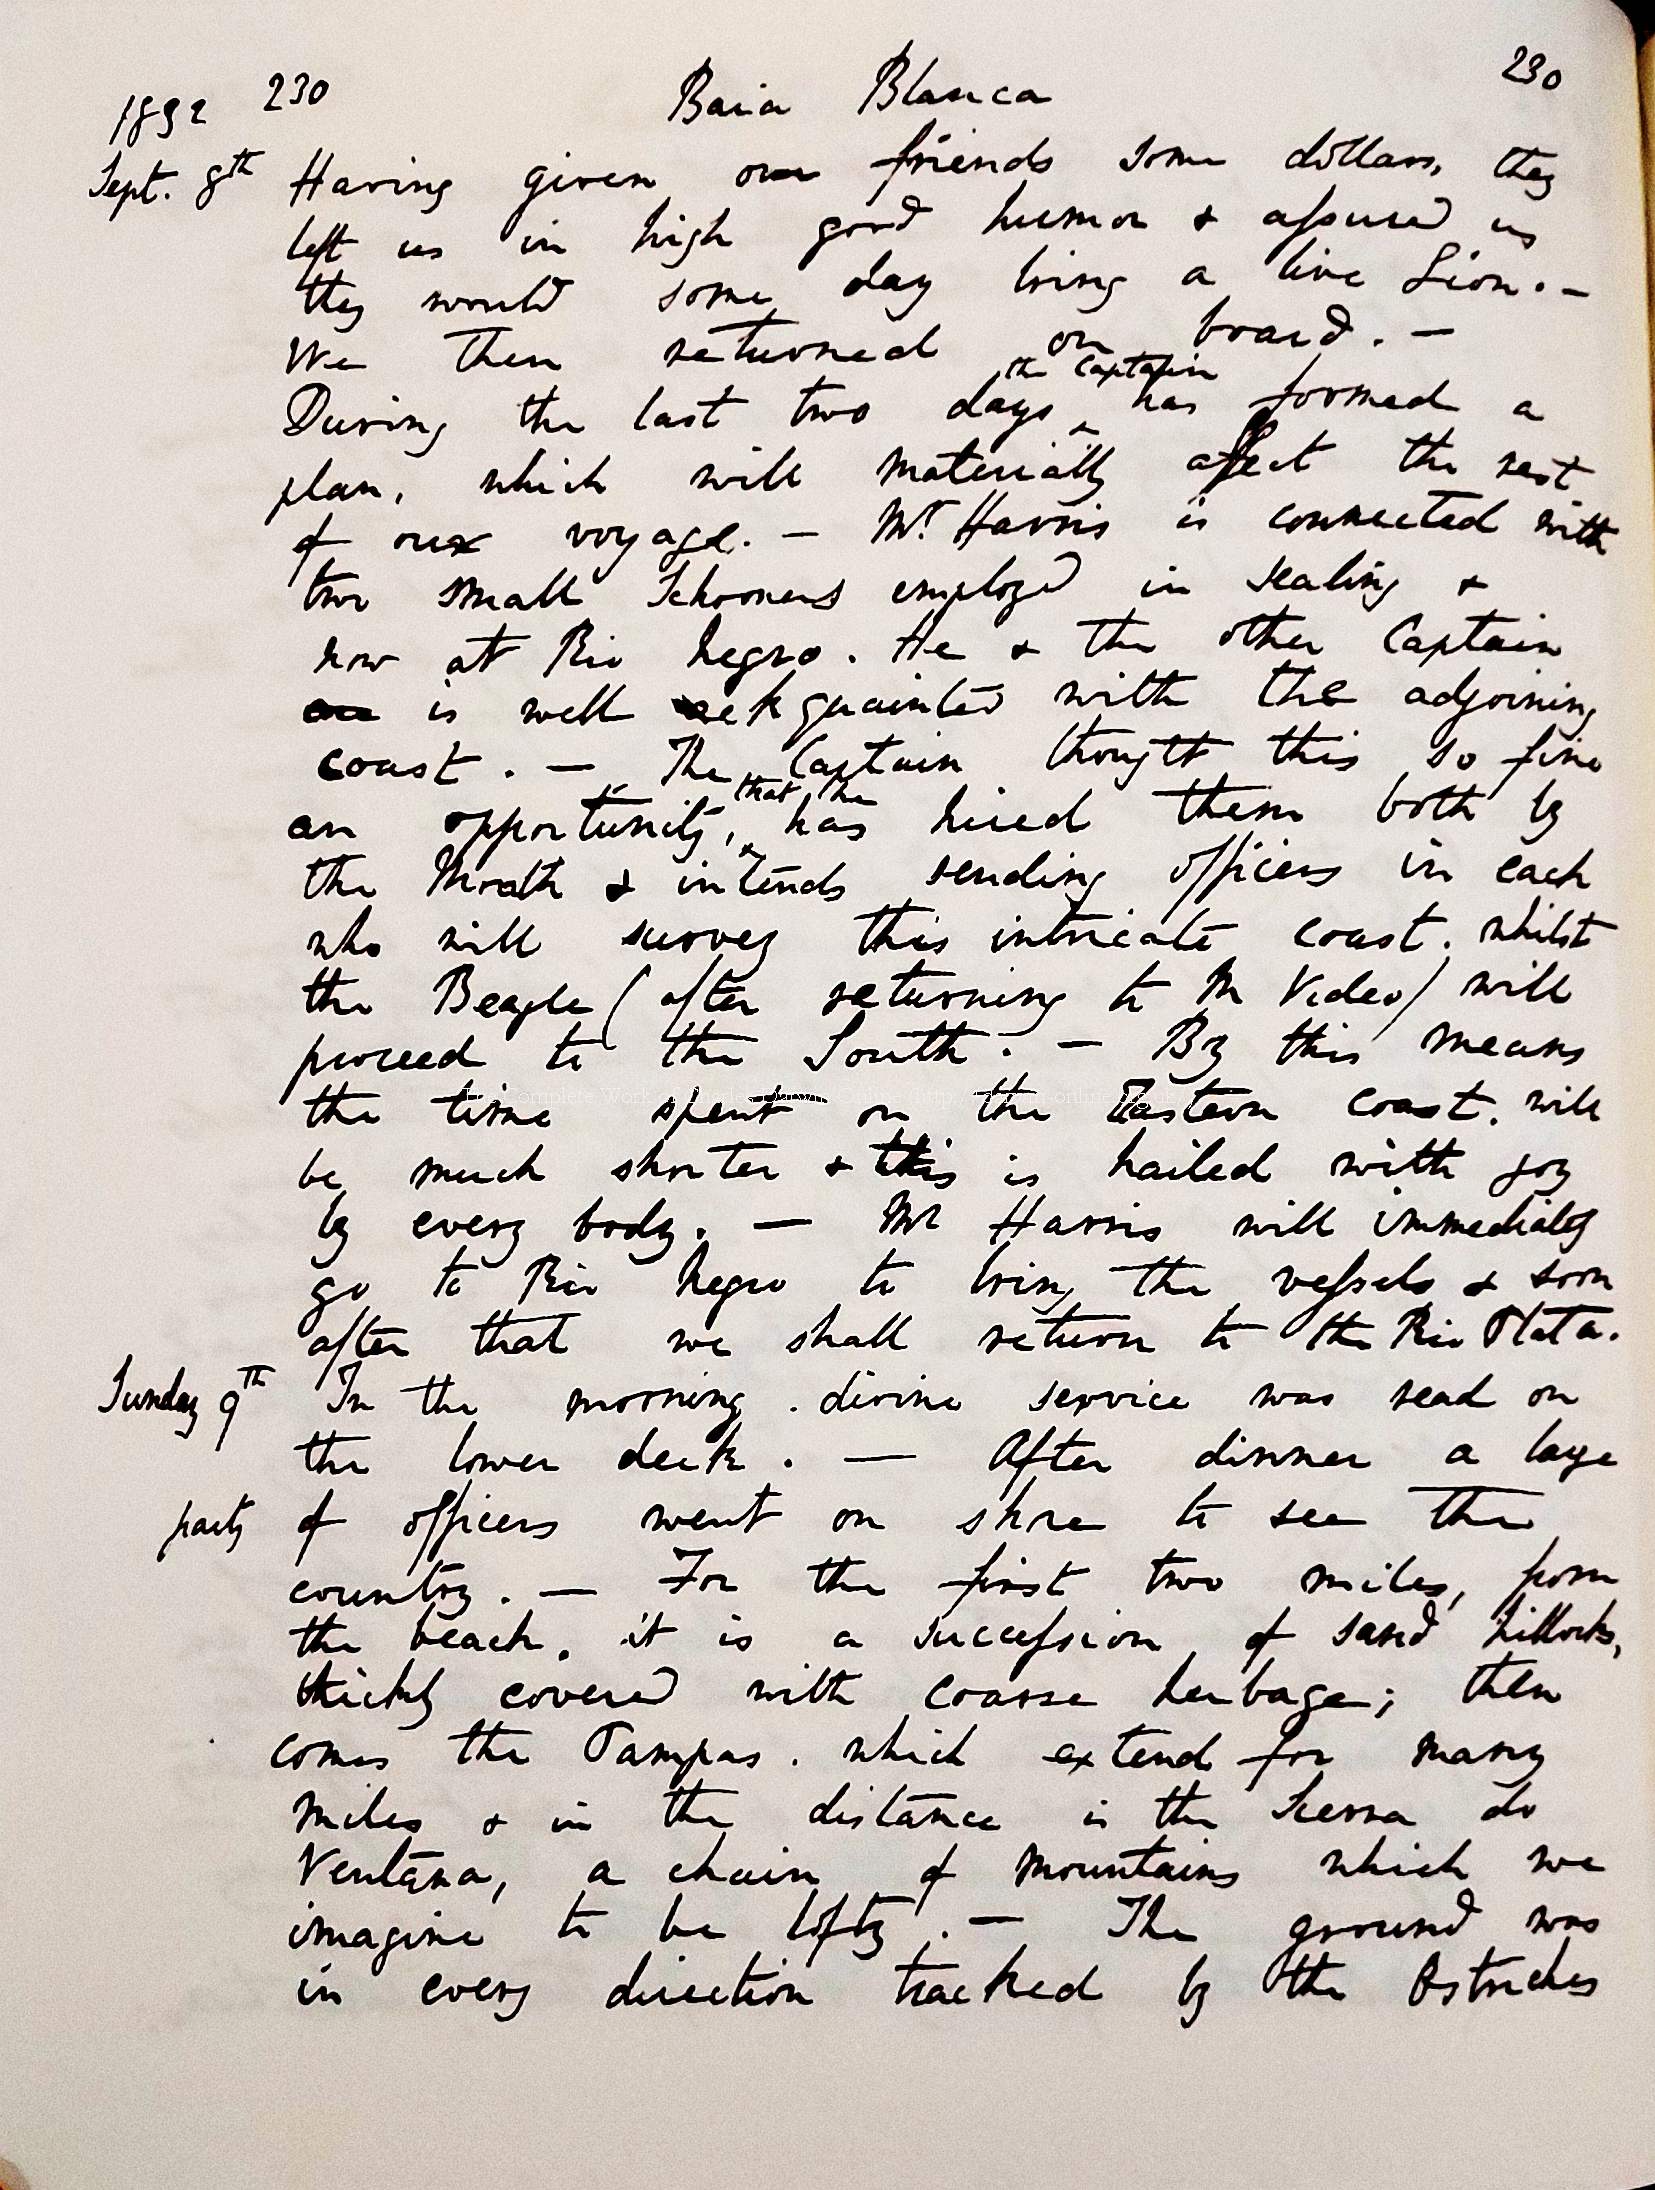 1832 230 Baia Blanca 230
Sept. 8th Having given our friends some dollars, they
left us in high good humor & assured us
they would some day bring a live Lion. —
We then returned on board. —
the Captain
During the last two days ^ has formed a
plan, which will materially affect the rest
of our voyage. — Mr. Harris is connected with
two small Schooners employed in sealing &
now at Rio Negro. He & the other Captain
is well ackquainted with the adjoining
coast. — The Captain thought this so fine
that he
an opportunity, ^ has hired them both by
the Month & intends sending officers in each
who will survey this intricate coast. whilst
the Beagle (after returning to M Video) will
proceed to the South. — By this means
the time spent on the Eastern coast. will
be much shorter & this is hailed with joy
by every body. — Mr Harris will immediately
go to Rio Negro to bring the vessels & soon
after that we shall return to the Rio Plata.
Sunday 9th In the morning. divine service was read on
the lower deck. — After dinner a large
party of officers went on shore to see the
country. — For the first two miles, from
the beach, it is a succession of sand hillocks,
thickly covered with coarse herbage; then
comes the Pampas. which extend for many
miles & in the distance is the Sierra do
Ventana, a chain of mountains which we
imagine to be lofty. — The ground was
in every direction tracked by the Ostriches